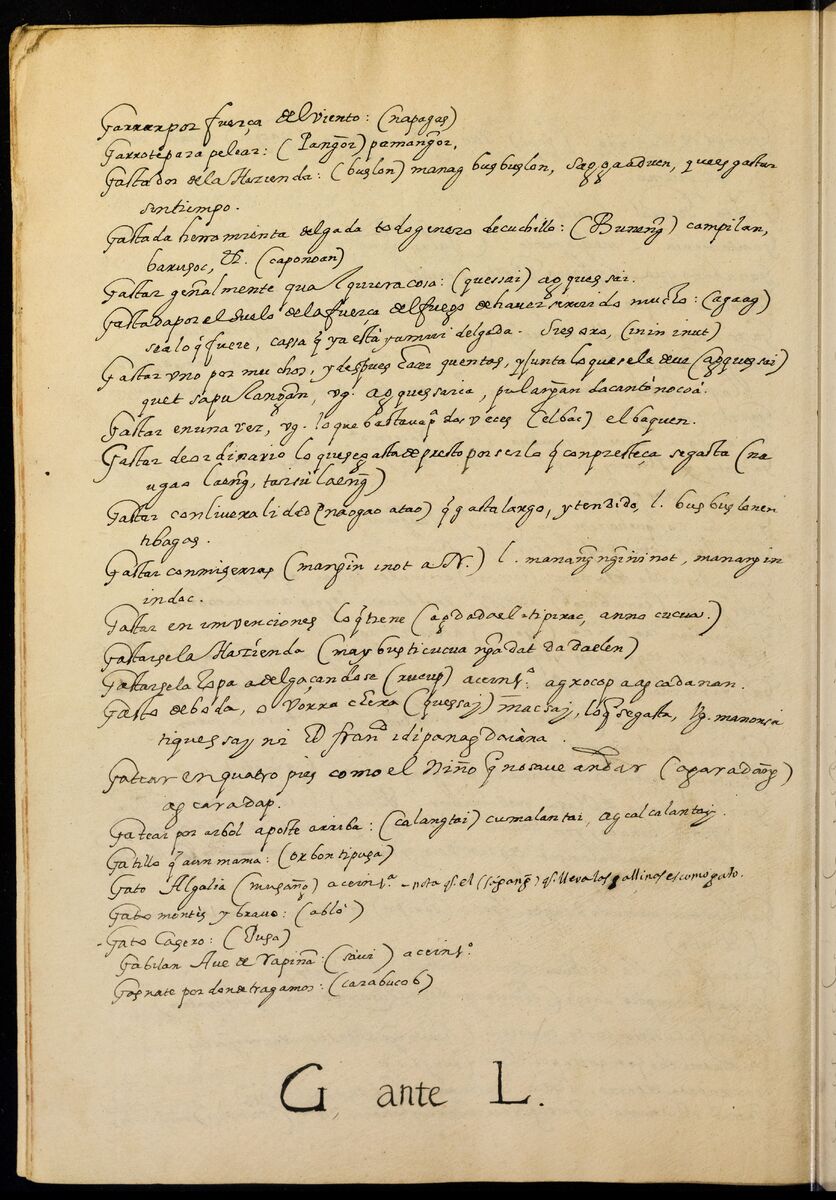 Garrar por fuerça del viento: (napagas)
Garrote para pelear: (Pangor) pamangor,
Gastador de la Hazienda: (buslon) manag busbuslon, saggaaduen, que es gastar
sin tiempo.
Gastada herramienta delgada todo genero de cuchillo: (Buneng) campilan,
barusoc, &. (caponoan)
Gastar genalmente qualquiera cosa: (quessai) agquessai.
Gastada por el suelo de la fuerça del fuego de haver servido mucho: (agaag)
sea lo q̃ fuere, cassa q̃ ya està mui delgada. (ininut)
Gastar uno por muchos, y despues hazer quentas, y junta lo que se le deve (agquessai)
quet sapulangan, vg. agquessaria, pulangan dacanto nocoa.
Gastar en una vez, vg. lo que bastava pa dos veces (elbac) elbaquen.
Gastar de ordinario lo que se gasta de presto por ser lo q̃ con presteça se gasta (na
ugao laeng, tarisu laeng)
Gastar con liveralidad (naogao atao) q̃ gasta largo, y tendido, l. busbuslonen
tibagas.
Gastar con miserias (mangin inot a N.) l. manangngininot, manangin
indac.
Gastar en invenciones lo q̃ tiene (agdadael tipirac, anno cucua.)
Gastarse la Hazienda (maybus ti cucua ngadat dadaelen)
Gastarse la ropa adelgaçandose (rucup) acein 1.ª agrocop agcadanan.
Gasto de boda, o vorrachera (quessay) macsay, lo q̃ se gasta, vg. manonsa
ti quessay ni D. franco idi panagdaiana.
Gatear en quatro pies como el Niño q̃ no save andar (agaradang)
ag caradap.
Gatear por arbol a poste arriba: (calangtai) cumalantai, agcalcalantay.
Gatillo q̃ aun mama: (orbon ti pusa)
Gato Algalia (musang) acein 1.ª - nota q̃. el (sigang) q̃. lleva las gallinas es como gato.
Gato montès y bravo: (ablò)
- Gato Casero: (Pusa)
Gabilan Ave de rapiña: (sàvi) acein 1.ª
Gasnate por donde tragamos: (carabucob)
G, ante L.